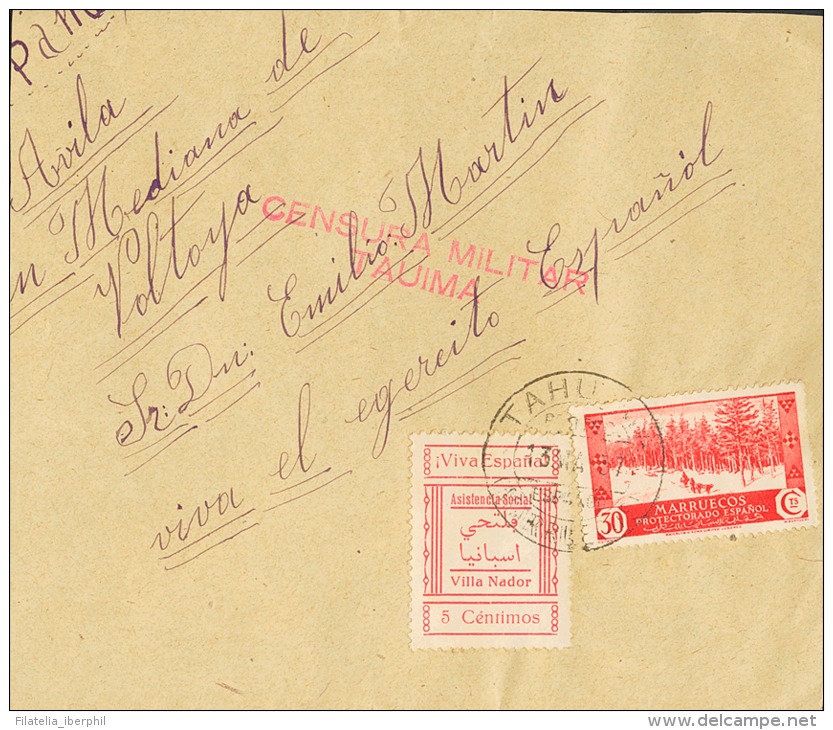 Avila
Mediana de
Voltoya
Sr. Dn. Emilio Martin
viva el egercito Español
CENSURA MILITAR
TAUIMA
TAHU
¡Viva España!
Asistencia Social
اسبانيا
Villa Nador
5 Céntimos
MARRUECOS
PROTECTORADO ESPAÑOL
30 CTS
Filatelia_iberphil
www.delcampe.net